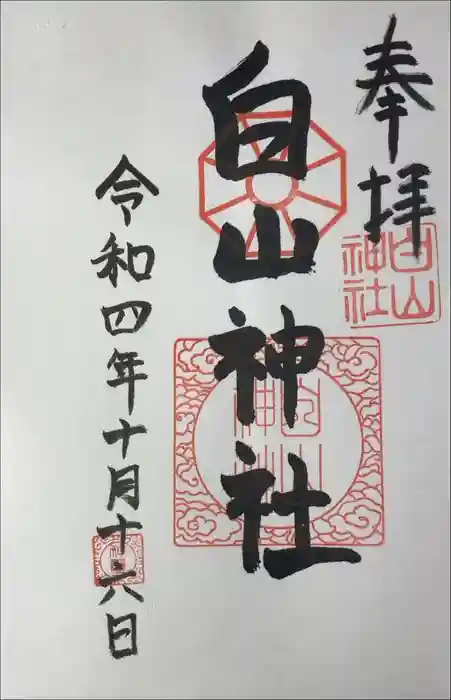 奉拝
白山神社
白山神社
白山神社
令和四年十月十六日